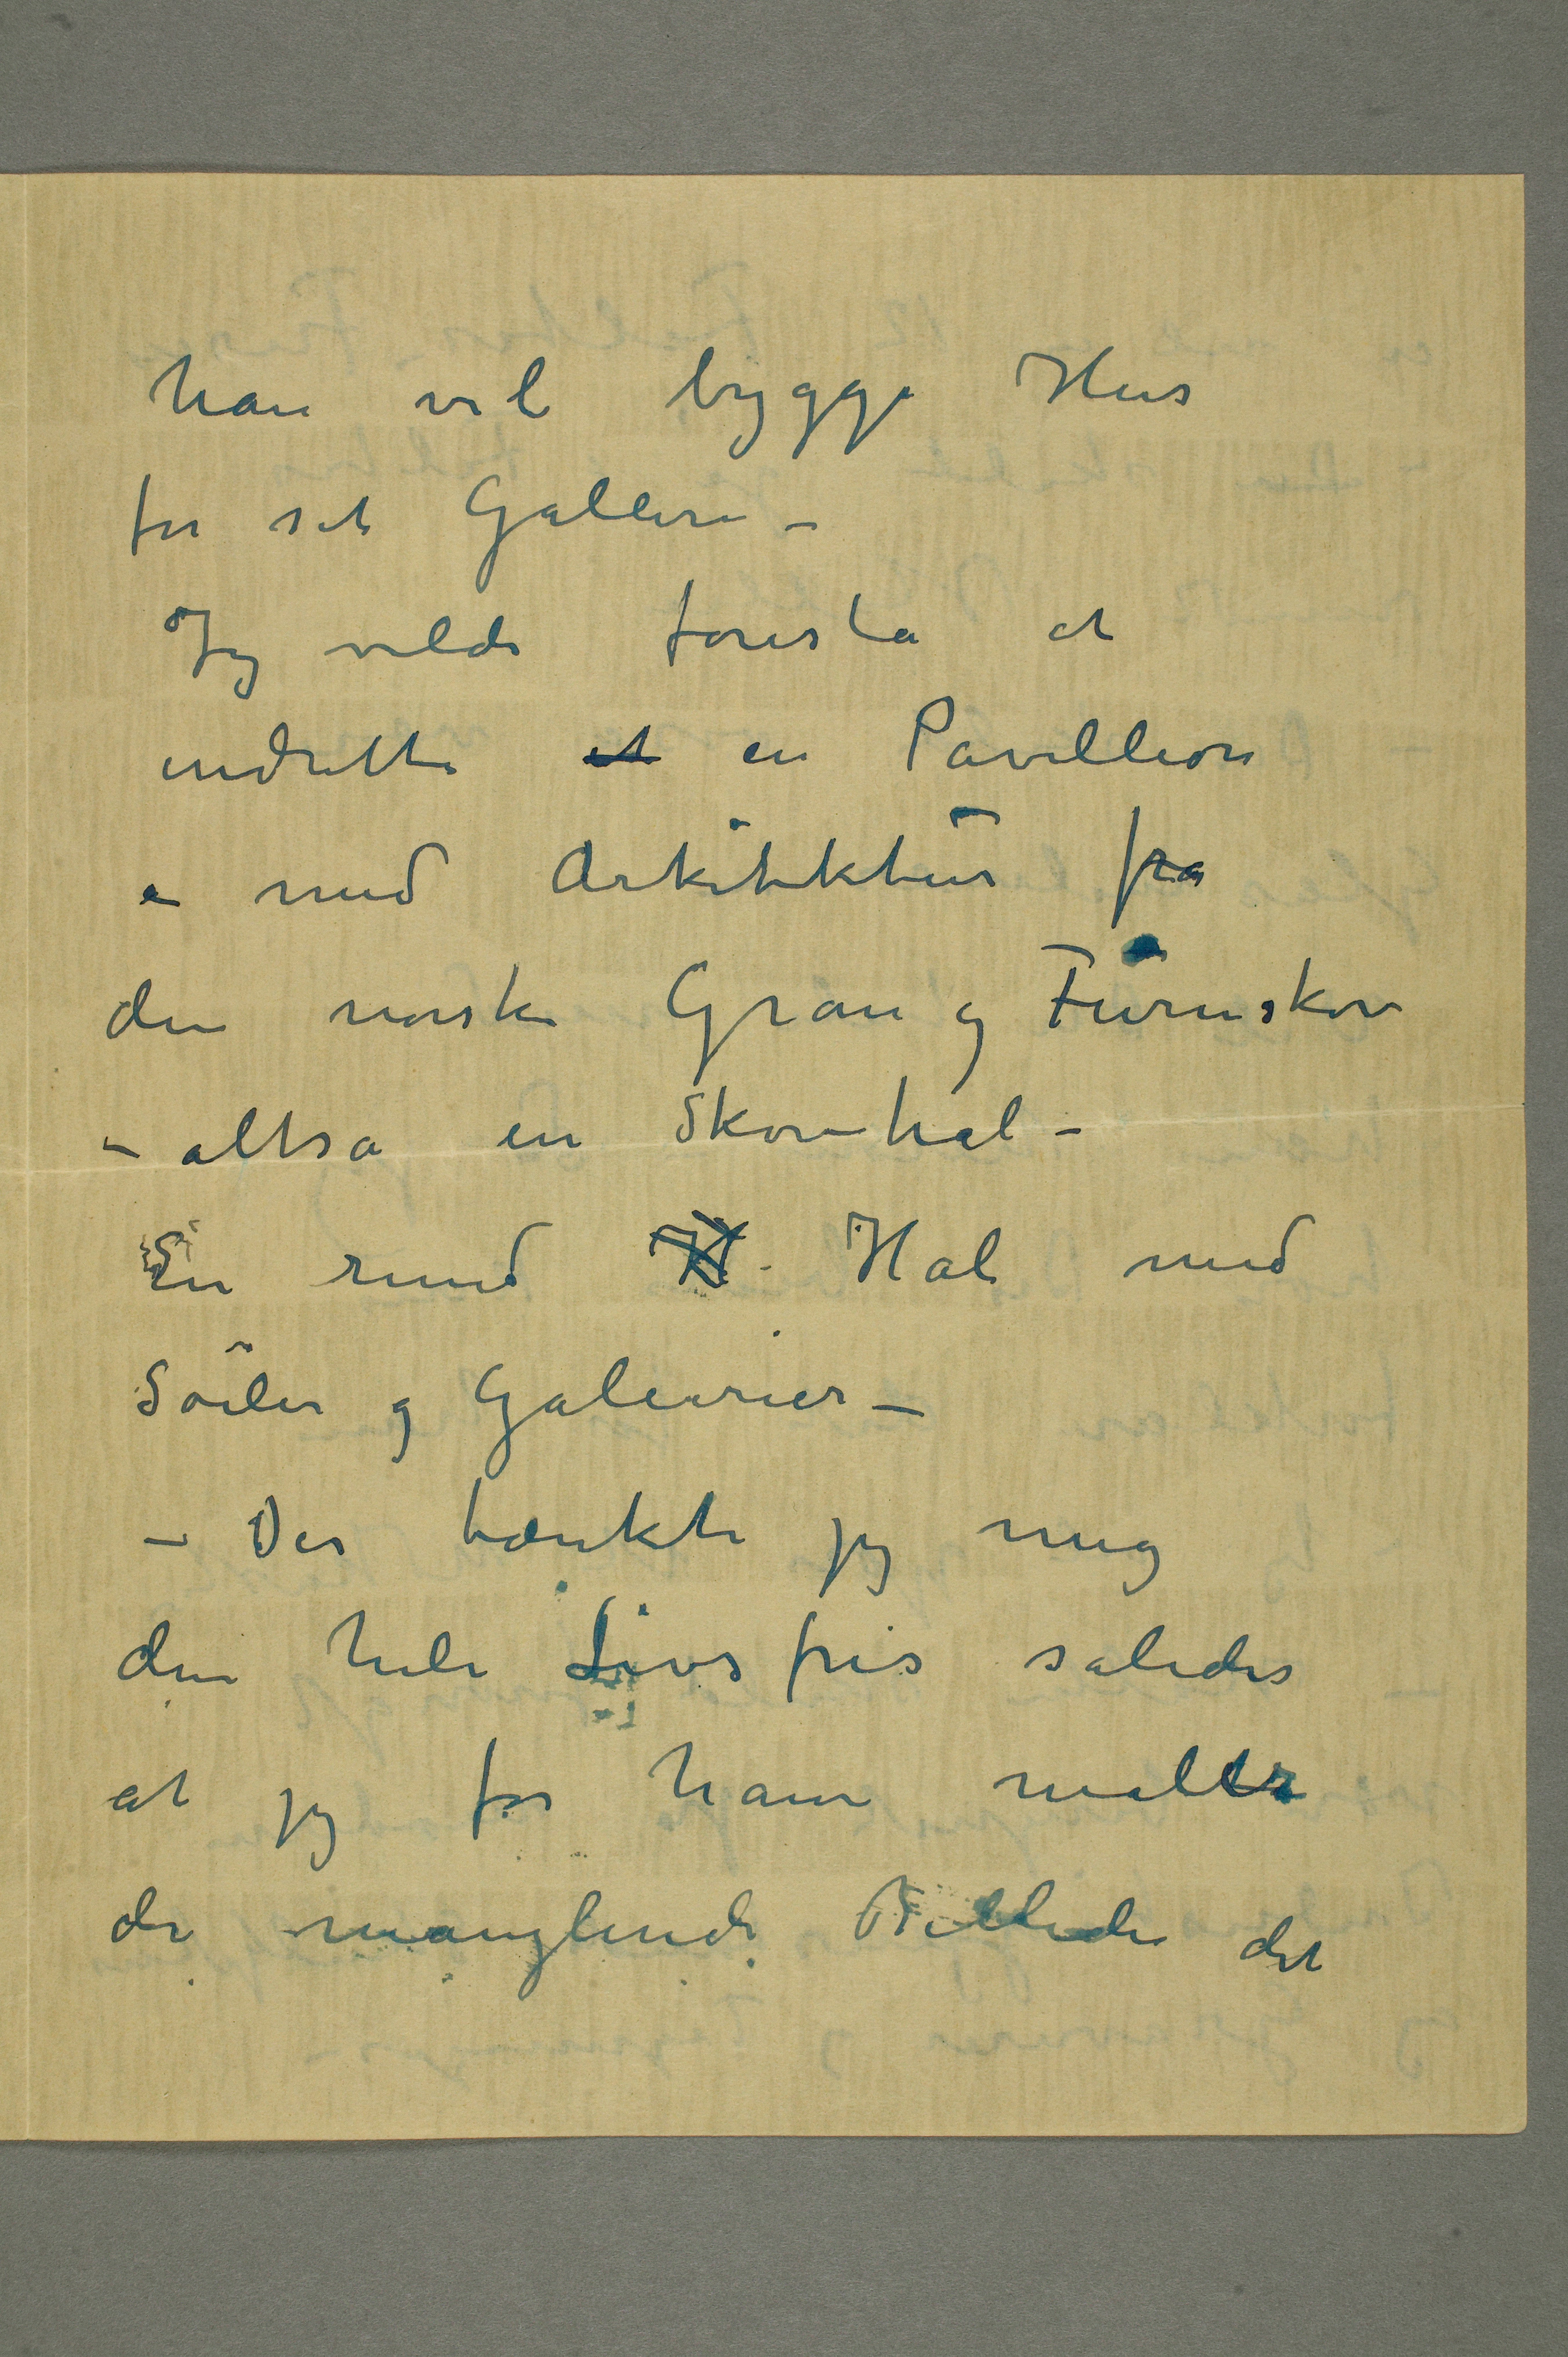 han vil bygge Hus
for sit Galleri –
Jeg vilde foresla at
indrette et en Pavillion
– med Arkitektur fra
den norske Gran og Furuskov
– altsa en Skovhal –
En rund H Hal med
Söiler og Galerier –
– Der tænkte jeg mig
den hele Livsfris saledes
at jeg for ham maler
de manglende Billeder det